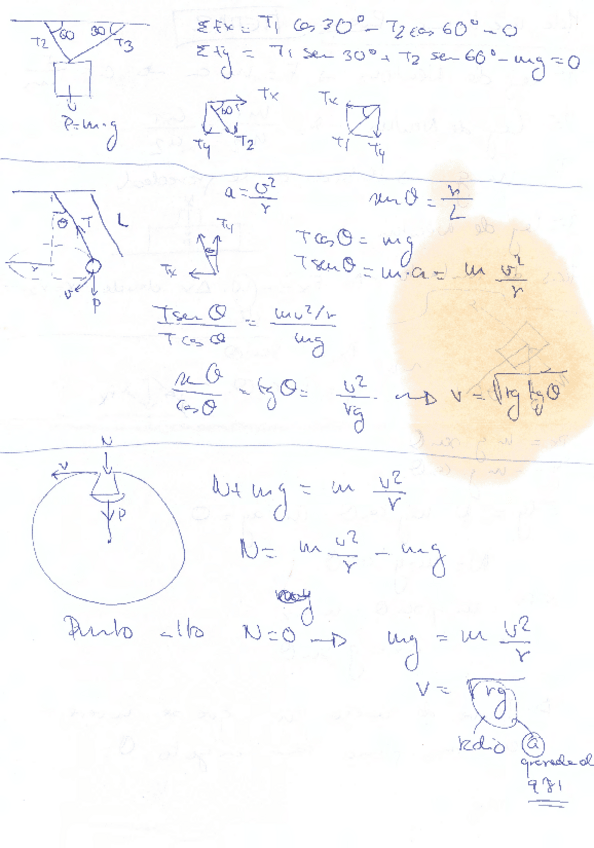 60 30°
T2 T3
P=m·g
Σfx = T1 cos 30° - T2 cos 60° = 0
Σfy = T1 sen 30° + T2 sen 60° - mg = 0
60° Tx
Ty T2
Tx
T1 Ty
θ T L
r
v P
Ty
θ
Tx
a = v²/r
sen θ = r/L
T cos θ = mg
T sen θ = m·a = m v²/r
T sen θ / T cos θ = mv²/r / mg
sen θ / cos θ = tg θ = v²/rg → v = √rg tg θ
N
v
P
N + mg = m v²/r
N = m v²/r - mg
Punto alto N=0 → mg = m v²/r
v = √rg
radio a
gravedad
9'81